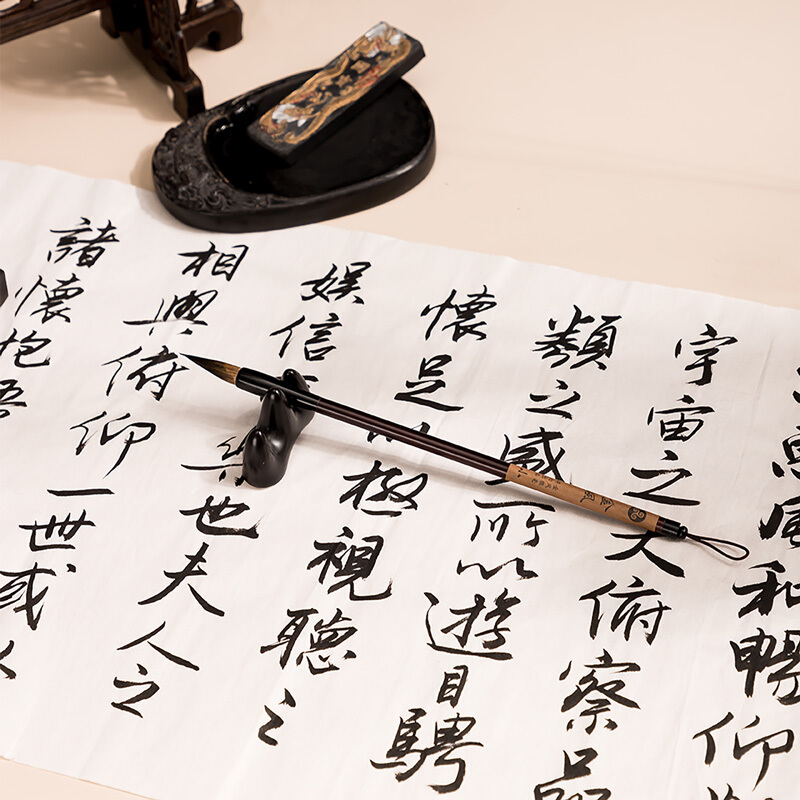 惠風和暢仰
宇宙之大俯察品
類之盛所以遊目騁
懷足以極視聽之
娛信樂也夫人之
相與俯仰一世或
諸懷抱